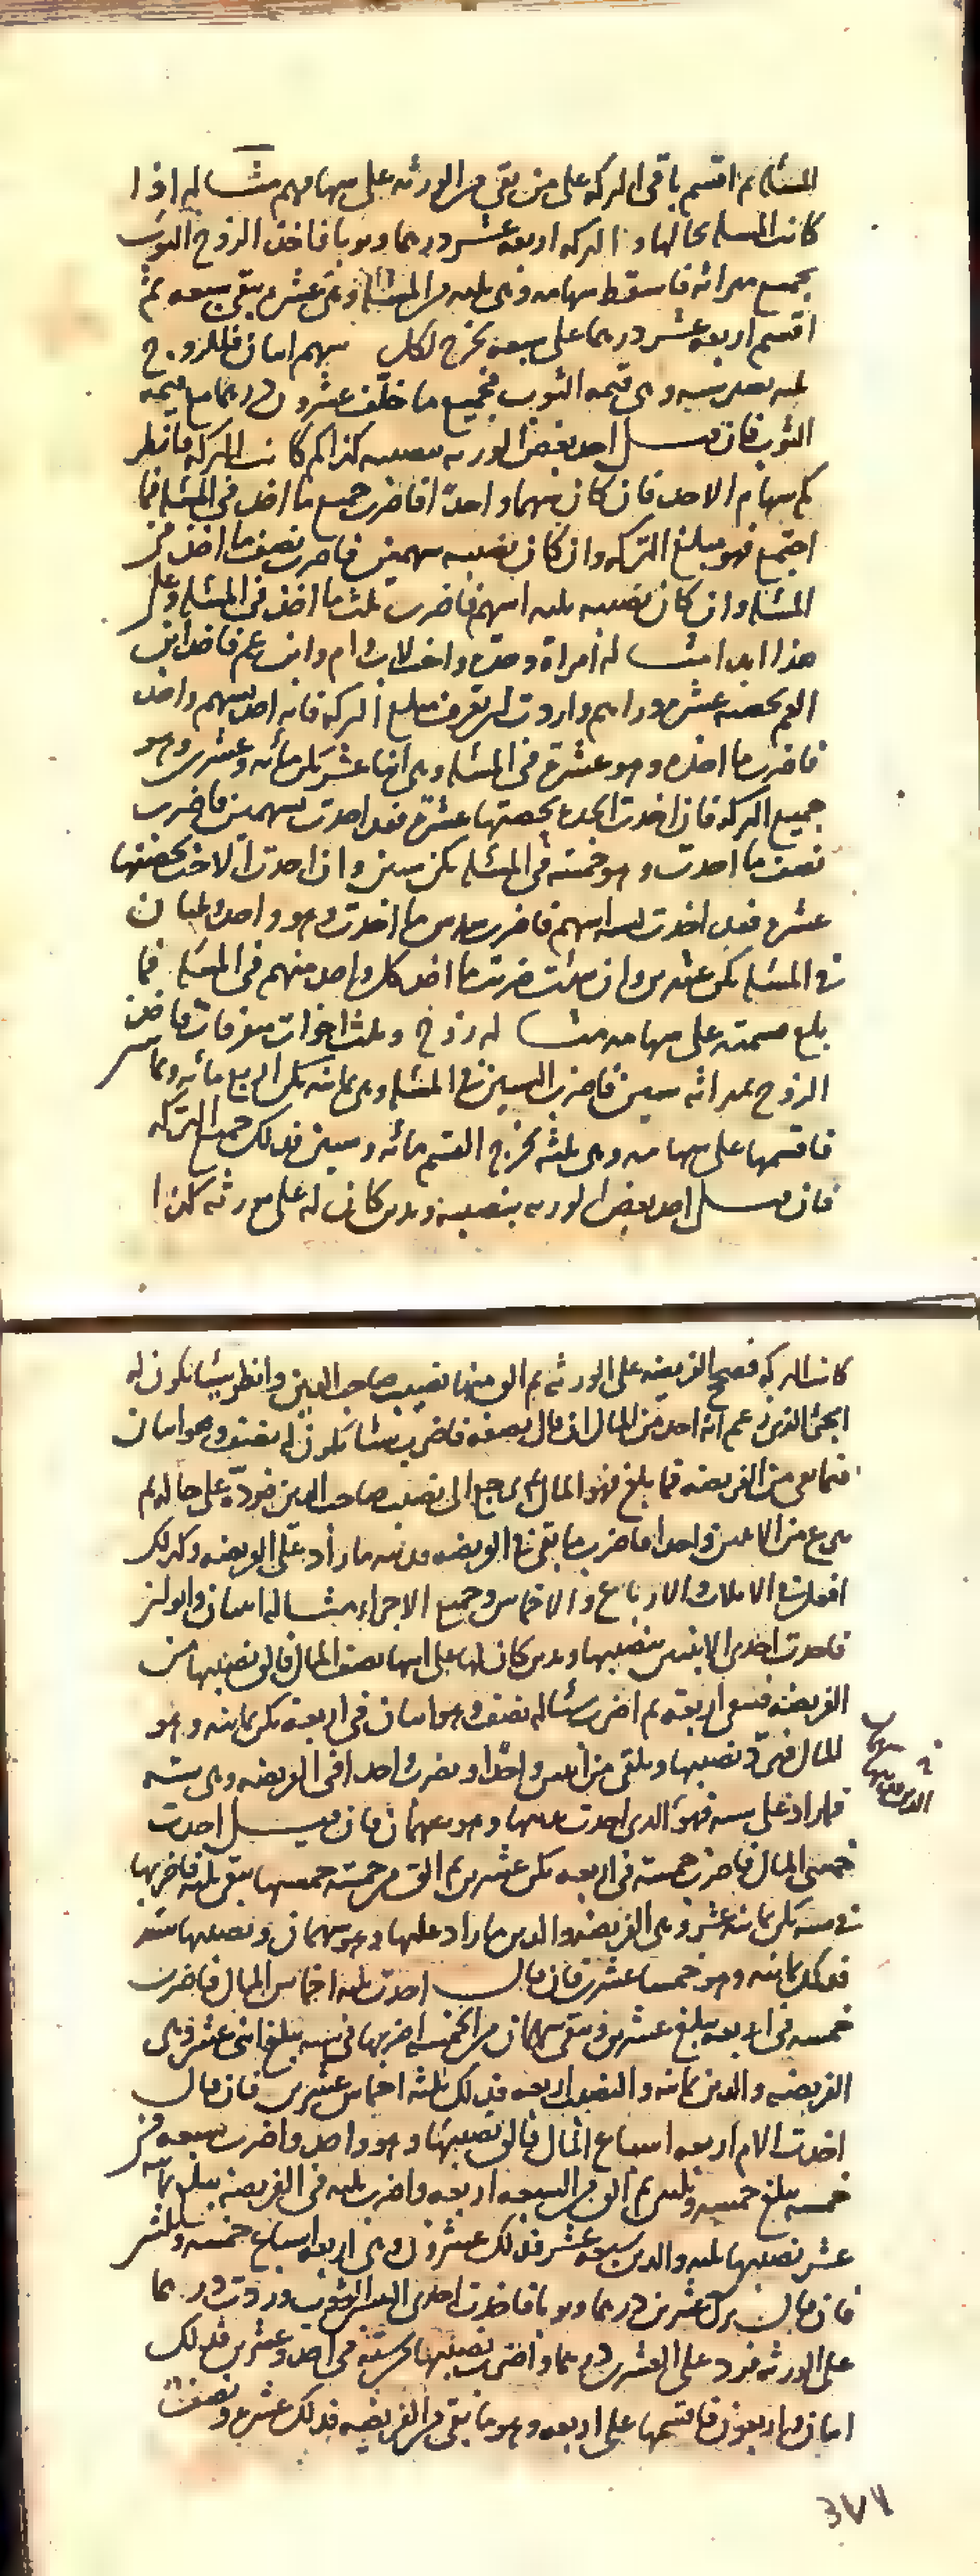 المسئلة ثم اقسم باقي التركه على من بقي من الورثه على سهامهم مثاله اذا
كانت المسئله بحالها والتركه اربعه عشر درهما وثوبا فاخذ الزوج الثوب
بجميع ميراثه فاسقط سهامه وهي ثلثه من المسئله وهي عشره يبقى سبعه ثم
اقسم اربعه عشر درهما على سبعه يخرج لكل سهم اثنان فللزوج
ثلثه بعد ستة وهي قيمه الثوب فجميع ما خلف عشرون درهما مع قيمه
الثوب فان قيل اخذ بعض الورثه بنصيبه كذا كم كانت التركه فانظر
كم سهام الاخذ فان كان سهما واحدا فاضرب جميع ما اخذ في المسئله فما
اجتمع فهو مبلغ التركه وان كان نصيبه سهمين فاضرب نصف ما اخذ في
المسئله وان كان نصيبه ثلثه اسهم فاضرب ثلث ما اخذ في المسئله وعلى
هذا ابدا مثاله امراة وجده واخت لاب وام وابن عم فاخذ ابن
العم بحصته عشره دراهم واردت ان تعرف مبلغ التركه فانه اخذ بسهم واحد
فاضرب ما اخذه وهو عشرة في المسئله وهي اثنا عشر يكن مائه وعشرين وهو
جميع التركه فان اخذت الجده بحصتها عشرة فقد اخذت بسهمين فاضرب
نصف ما اخذت وهو خمسه في المسئله يكن ستين وان اخذت الاخت بحصتها
عشره فقد اخذت بستة اسهم فاضرب سدس ما اخذت وهو واحد وثلثان
في المسئله يكن عشرين وان شئت ضربت ما اخذ كل واحد منهم في المسئله فما
بلغ قسمته على سهامه مثاله زوج وثلث اخوات متفرقات فاخذ
الزوج بميراثه ستين فاضرب الستين في المسئله وهي ثمانيه يكن اربع مائه وثمانين
فاقسمها على سهامه وهي ثلثه يخرج القسم مائه وستين فذلك جميع التركه
فان قيل اخذ بعض الورثه بنصيبه وبدين كان له على مورثه كذا
كانت التركه فصحح الفريضه على الورثه ثم الق منها نصيب صاحب الدين وانظر شيئا يكون له
الجزء الذي زعم انه اخذ من المال ان قال نصفه فاضرب شيئا يكون له نصف وهو اثنان
فيما بقي من الفريضه فما بلغ فهو المال ثم ارجع الى نصيب صاحب الدين فرده على حاله ثم
من الاثنين واحدا فاضرب ما بقي في الفريضه فدينه ما زاد على الفريضه وكذلك
افعل في الاثلاث والارباع والاخماس وجميع الاجزاء مثاله ابنتان وابوان
فاخذت احدى الابنتين بنصيبها وبدين كان لها على ابيها نصف المال فالق نصيبها من
الفريضه فتبقى اربعه ثم اضرب شيئا له نصف وهو اثنان في اربعه يكن ثمانيه وهو
المال فرد نصيبها وتلقى من اثنين واحدا وتضرب واحدا في الفريضه وهي سته
فما زاد على سته فهو الذي اخذت بدينها وهو سهمان فان قيل اخذت
خمسي المال فاضرب خمسه في اربعه يكن عشرين ثم الق من خمسه خمسيها يبقى ثلثه فاضربها
في سته يكن ثمانيه عشر وهي الفريضه والدين ما زاد عليها وهو سهمان ونصيبها سته
فذلك ثمانيه وهو خمسا عشرين فان قال اخذت ثلثه اخماس المال فاضرب
خمسه في اربعه يبلغ عشرين ويبقى سهمان من الخمسه اضربها في سته يبلغ اثنى عشر وهي
الفريضه والدين ثمانيه والنصيب اربعه فذلك ثلثه اخماس عشرين فان قال
اخذت الام اربعه اسباع المال فالق نصيبها وهو واحد واضرب سبعه في
خمسه يبلغ خمسه وثلثين ثم الق من السبعه اربعه واضرب ثلثه في الفريضه يبلغ ثمانيه
عشر نصيبها ثلثه والدين سبعه عشر فذلك عشرون وهي اربعه اسباع خمسه وثلثين
فان قال ترك عشرين درهما وثوبا فاخذت احدى البنتين الثوب وردت درهما
على الورثه فزد على العشرين درهما واضرب نصيبها من سته في احد وعشرين فذلك
اثنان واربعون فاقسمها على اربعه وهو ما بقي من الفريضه فذلك عشره ونصف
٣٧٧